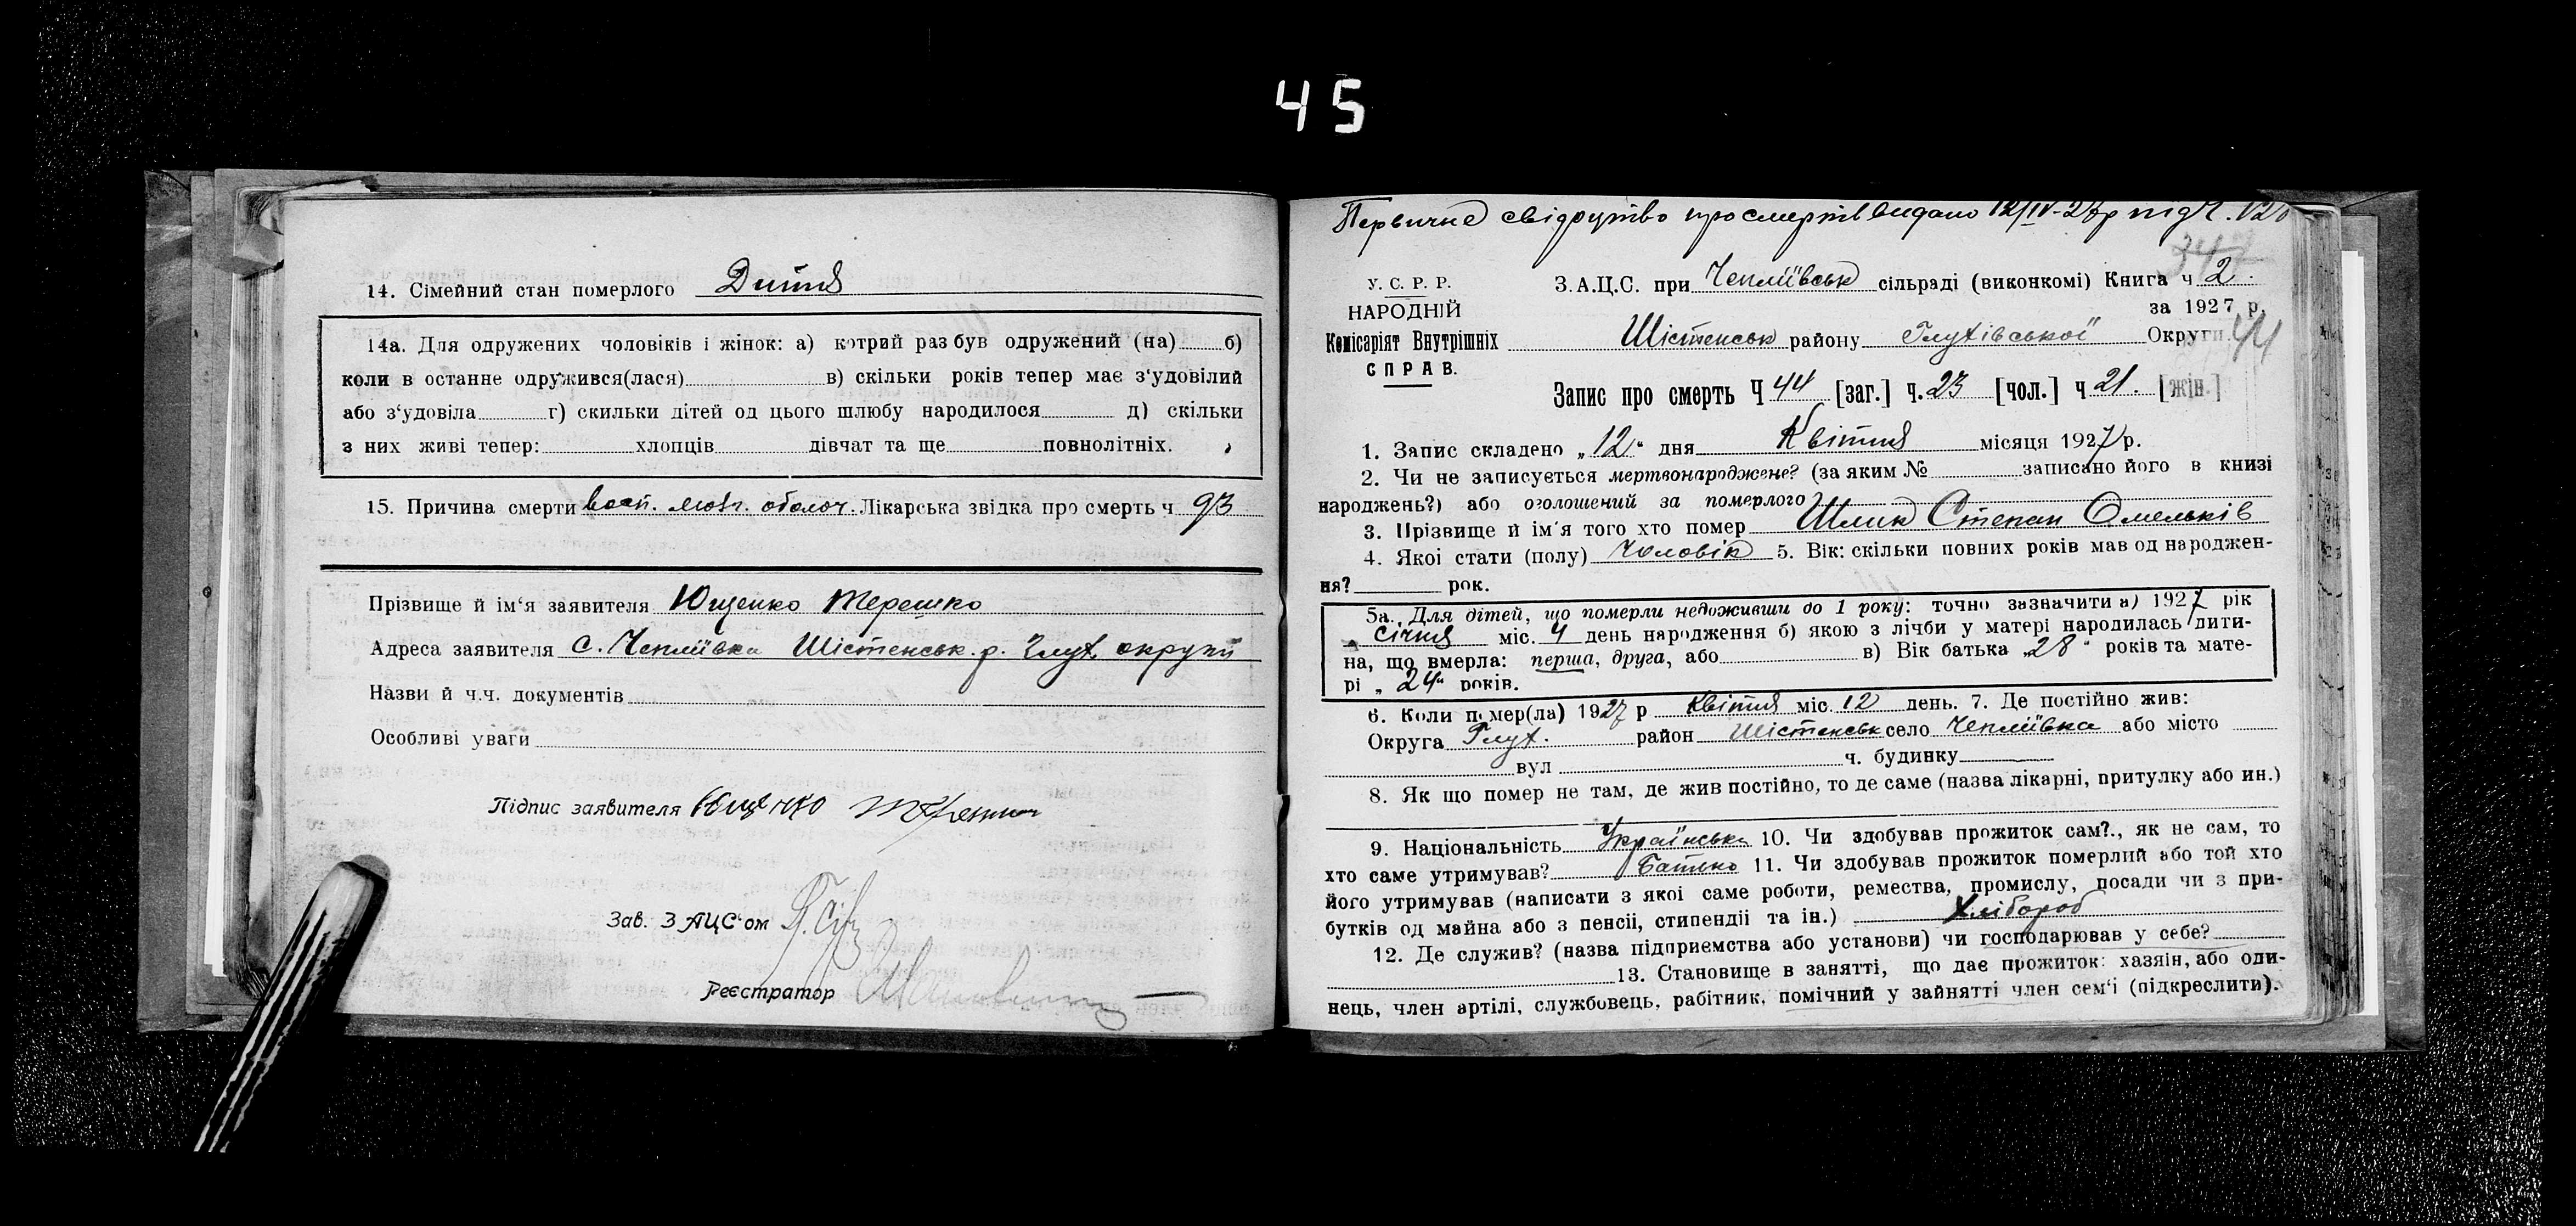 45
14. Сімейний стан померлого Дитя
14а. Для одружених чоловіків і жінок: а) котрий раз був одружений (на) б)
коли в останнє одружився(лася) в) скільки років тепер має з‘удовілий
або з‘удовіла г) скильки дітей од цього шлюбу народилося д) скільки
з них живі тепер: хлопців дівчат та ще повнолітніх.
15. Причина смерти восп. мозг. оболоч. Лікарська звідка про смерть ч 93
Прізвище й ім‘я заявителя Ющенко Терешко
Адреса заявителя с. Чепліївка Шістенськ. р. Глух. округи
Назви й ч.ч. документів
Особливі уваги
Підпис заявителя Ющенко
Зав. ЗАЦС‘ом
Реєстратор
Первичне свідоцтво про смерть видано 12/IV-27р під Ч.
У. С. Р. Р.
НАРОДНІЙ
Комісаріят Внутрішніх
СПРАВ.
З.А.Ц.С. при Чепліївськ сільраді (виконкомі) Книга ч 2.
за 1927 р.
Шістенськ району Глухівської Округи 44
Запис про смерть Ч 44 [заг.] ч. 23 [чол.] ч 21. [жін.]
1. Запис складено „12“ дня Квітня місяця 1927 р.
2. Чи не записуеться мертвонароджене? (за яким № записано його в книзі
народжень?) або оголошений за померлого
3. Прізвище й ім‘я того хто помер Шлик Степан Омельків
4. Якоі стати (полу) Чоловік 5. Вік: скільки повних років мав од народжен-
ня? рок.
5а. Для дітей, що померли недоживши до 1 року: точно зазначити а) 1927 рік
Січня міс. 4 день народження б) якою з лічби у матері народилась дити-
на, що вмерла: перша, друга, або в) Вік батька „28“ років та мате-
рі „24“ років.
6. Коли помер(ла) 1927 р Квітня міс. 12 день. 7. Де постійно жив:
Округа Глух. район Шістенськ село Чепліївка або місто
вул ч. будинку
8. Як що помер не там, де жив постійно, то де саме (назва лікарні, притулку або ин.)
9. Національність Українська 10. Чи здобував прожиток сам?., як не сам, то
хто саме утримував? Батько 11. Чи здобував прожиток померлий або той хто
його утримував (написати з якоі саме роботи, ремества, промислу, посади чи з при-
бутків од майна або з пенсіі, стипендіі та ін.) Хлібороб
12. Де служив? (назва підприемства або установи) чи господарював у себе?
13. Становище в занятті, що дає прожиток: хазяін, або оди-
нець, член артілі, службовець, рабітник, помічний у зайнятті член сем‘і (підкреслити).